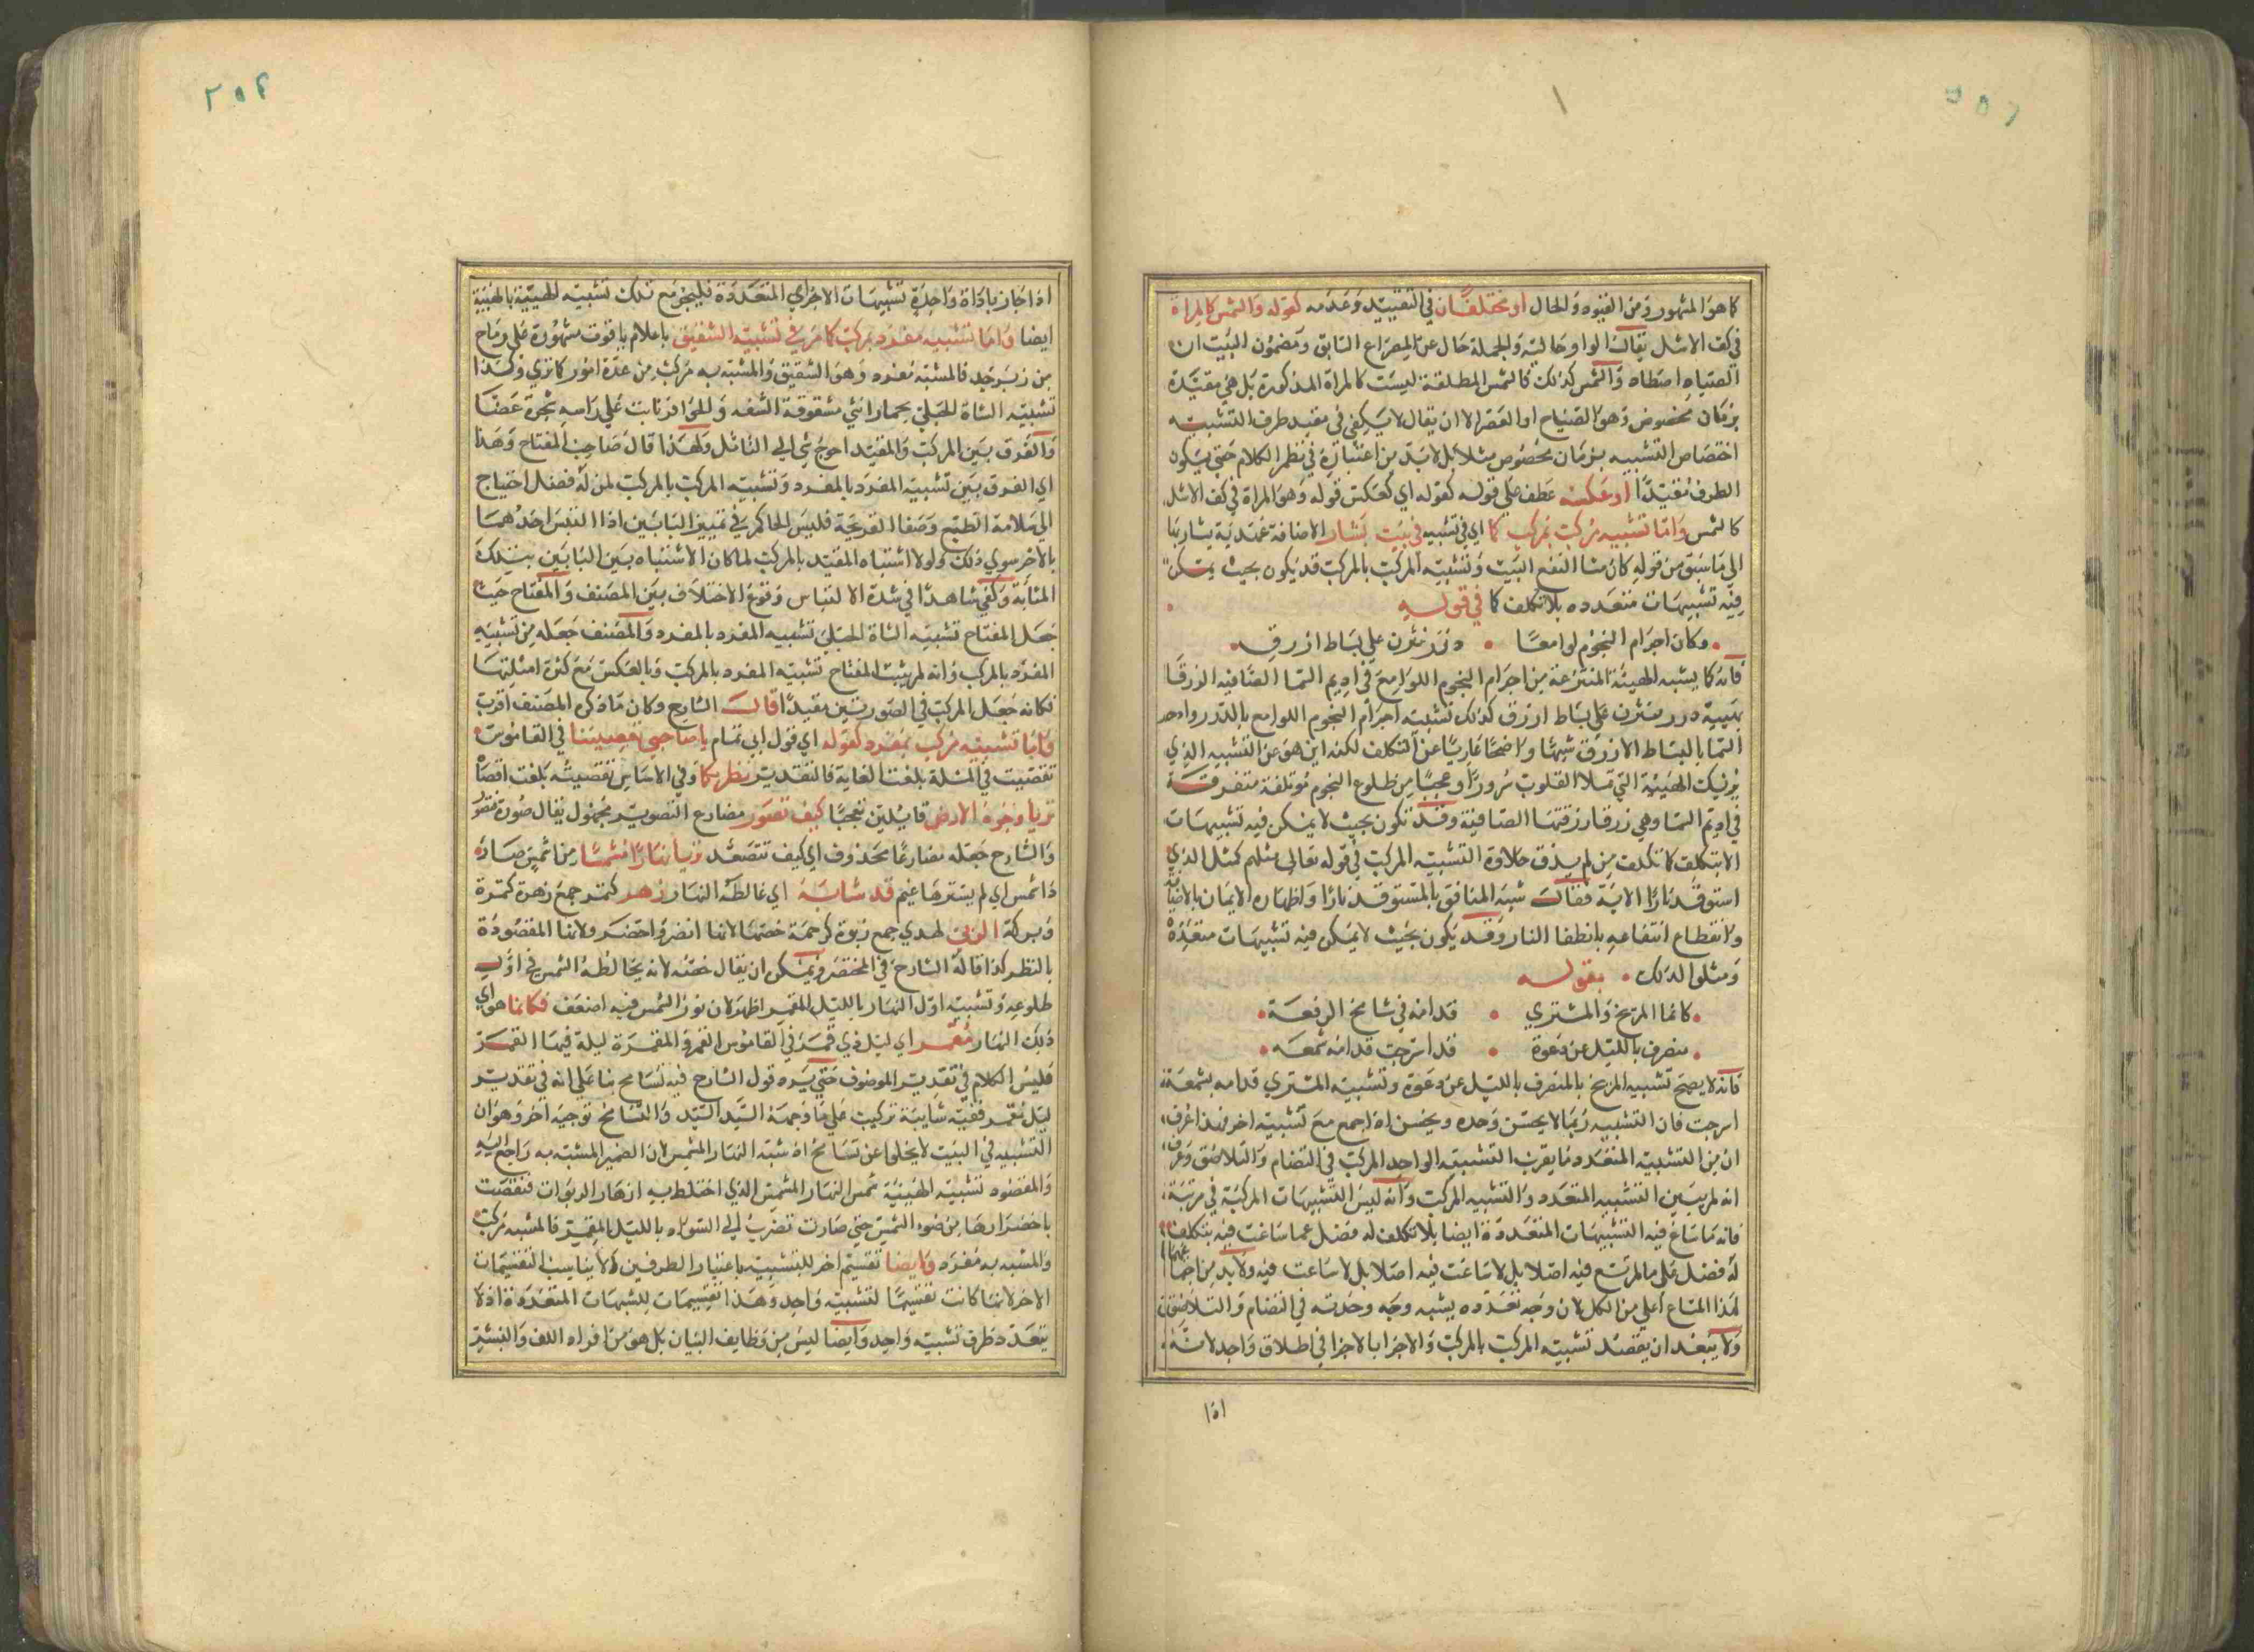 كما هو المشهور ومن القيود والحال او مختلفان في التقييد وعدمه كقوله والشمس كالمراة
في كف الاشل يقال الواو حالية والجملة حال عن المصراع السابق ومضمون البيت ان
الصياه اصطاه والشمس كذلك فالشمس المطلقة ليست كالمراة المذكورة بل هي مقيدة
بزمان مخصوص وهو الصباح او العصر الا ان يقال لا يكفي في مقيد طرف التشبيه
اختصاص التشبيه بزمان مخصوص مثلا بل لا بد من اعتباره في نظم الكلام حتى يكون
الطرف مقيدا او عكسه عطف على قوله كقوله اي كعكس قوله وهو المراة في كف الاشل
كالشمس واما تشبيه مركب بمركب كما اي في تشبيه في بيت بشار الاضافة عهدية يشار بها
الى ما سبق من قوله كان مثار النقع البيت وتشبيه المركب بالمركب قد يكون بحيث يمكن
فيه تشبيهات متعدده بلا تكلف كما في قوله
وكان اجرام النجوم لوامعا درر نثرن على بساط ازرق
فانه كما يشبه الهيئة المنتزعة من اجرام النجوم اللوامع في اديم السما الصافيه الزرقا
بهيئة درر منثرن على بساط ازرق كذلك تشبيه اجرام النجوم اللوامع بالدرر واديم
السما بالبساط الازرق شبها واضحا عاريا عن التكلف لكنه اين هو عن التشبيه الذي
يريك الهيئة التي تملا القلوب سرورا وعجبا من طلوع النجوم مؤتلفة متفرقة
في اديم السما وهي زرقا زرقتها الصافية وقد تكون بحيث لا يمكن فيه تشبيهات
الا بتكلف كما تكلف من لم يذق حلاوة التشبيه المركب في قوله تعالى مثلهم كمثل الذي
استوقد نارا الاية فقال شبه المنافق بالمستوقد نارا واظهاره الايمان بالاضاة
وانقطاع انتفاعه بانطفا النار وقد يكون بحيث لا يمكن فيه تشبيهات متعددة
ومثلوا لذلك بقوله
كانما المريخ والمشتري قدامه في شامخ الرفعة
منصرف بالليل عن دعوة قد اسرجت قدامه شمعه
فانه لا يصح تشبيه المريخ بالمنصرف بالليل عن دعوة وتشبيه المشتري قدامه بشمعة
اسرجت فان التشبيه ربما لا يحسن وحده ويحسن اذا جمع مع تشبيه اخر فهذا عرف
ان من التشبيه المتعدد ما يقرب التشبيه الواحد المركب في التضام والتلاصق وعرف
انه لم يبين التشبيه المتعدد والتشبيه المركب وانه ليس التشبيهات المركبة في مرتبة
فانه مما ساغ فيه التشبيهات المتعددة ايضا بلا تكلف له فضل عما ساغت فيه بتكلف
له فضل على ما لم تسغ فيه اصلا بل لا ساغت فيه اصلا بل لا ساغت فيه ولا بد من
لهذا المساع اعلى من الكل لان وجه تعدده يشبه وجه وحدته في التضام والتلاصق
ولا يبعد ان يقصد تشبيه المركب بالمركب والاجزا بالاجزا في اطلاق واحد لانه
اذا
اذا جاز باداة واحدة تشبيهات الاجزاي المتعددة فليجز مع تلك تشبيه الهيئة بالهيئة
ايضا واما تشبيه مفرد بمركب كما مر في تشبيه الشقيق باعلام ياقوت منشورة على رماح
من زبرجد فالمشبه مفرد وهو الشقيق والمشبه به مركب من عدة امور كما ترى وكذا
تشبيه الشاة الجبلي بحمار ابتر مشقوق الشفه والحوافر نابت على راسه شجرتا غضا
والفرق بين المركب والمقيد احوج شي الى التامل ولهذا قال صاحب المفتاح وهذا
اي الفرق بين تشبيه المفرد بالمفرد وتشبيه المركب بالمركب لمن له فضل احتياج
الى سلامة الطبع وصفا القريحة فليس الحاكم في تمييز البابين اذا التبس احدهما
بالاخر سوى ذلك ولولا اشتباه المقيد بالمركب لما كان الاشتباه بين البابين بتلك
المثابة وكفى شاهدا في شدة الالتباس وقوع الاختلاف بين المصنف والمفتاح حيث
جعل المفتاح تشبيه الشاة الجبلي تشبيه المفرد بالمفرد والمصنف جعله من تشبيه
المفرد بالمركب وانه لم يثبت المفتاح تشبيه المفرد بالمركب وبالعكس مع كثرة امثلتها
فكانه جعل المركب في الصورتين مقيدا قال الشارح وكان ما ذكره المصنف اقرب
واما تشبيه مركب بمفرد كقوله اي قول ابي تمام يا صاحبي تقصيا نظريكما في القاموس
تقصيت في المسئلة بلغت الغاية فالتقدير نظريكما وفي الاساس تقصيته بلغت اقصاه
تريا وجوه الارض قائلين تعجبا كيف تصور مضارع التصوير مجهول يقال صوره فتصور
والشارح جعله مضارعا محذوف اي كيف تتصعد تريا نهارا مشمسا من اشمس صار
ذا شمس اي لم يسترها غيم قد شابه اي خالطه النهار زهر كتمر جمع زهرة كتمرة
وبركة الربى لهدى جمع ربوة كرحمة خصها لانها انضر واخضر ولانها المقصودة
بالنظر كذا قاله الشارح في المختصر ويمكن ان يقال خصه لانه يخالطه الشمس في اول
طلوعه وتشبيه اول النهار بالليل المقمر اظهر لان نور الشمس فيه اضعف فكانما هو اي
ذلك النهار مقمر اي ليل ذي قمر في القاموس القمر والمقمرة ليلة فيها القمر
فليس الكلام في تقدير الموصوف حتى يرد قول الشارح فيه تسامح بنا على انه في تقدير
ليل مقمر ففيه شايبة تركيب على ما وجهه السيد السند والتسامح توجيه اخر وهو ان
التشبيه في البيت لا يخلوا عن تسامح اذ شبه النهار المشمس لان الضمير المشبه به راجع اليه
والمقصود تشبيه الهيئة شمس النهار المشمس الذي اختلط به ازهار الربوات فنقصت
باخضرارها من ضوء الشمس حتى صارت تضرب الى السواد بالليل المقمر فالمشبه مركب
والمشبه به مفرد وايضا تقسيم اخر للتشبيه باعتبار الطرفين ولا يناسب التقسيمات
الاخر لانها كانت تقسيما لتشبيه واحد وهذا تقسيمات للشبهات المتعددة اذ لا
يتعدد طرف تشبيه واحد وايضا ليس من وظايف البيان بل هو من افراد اللف والنشر